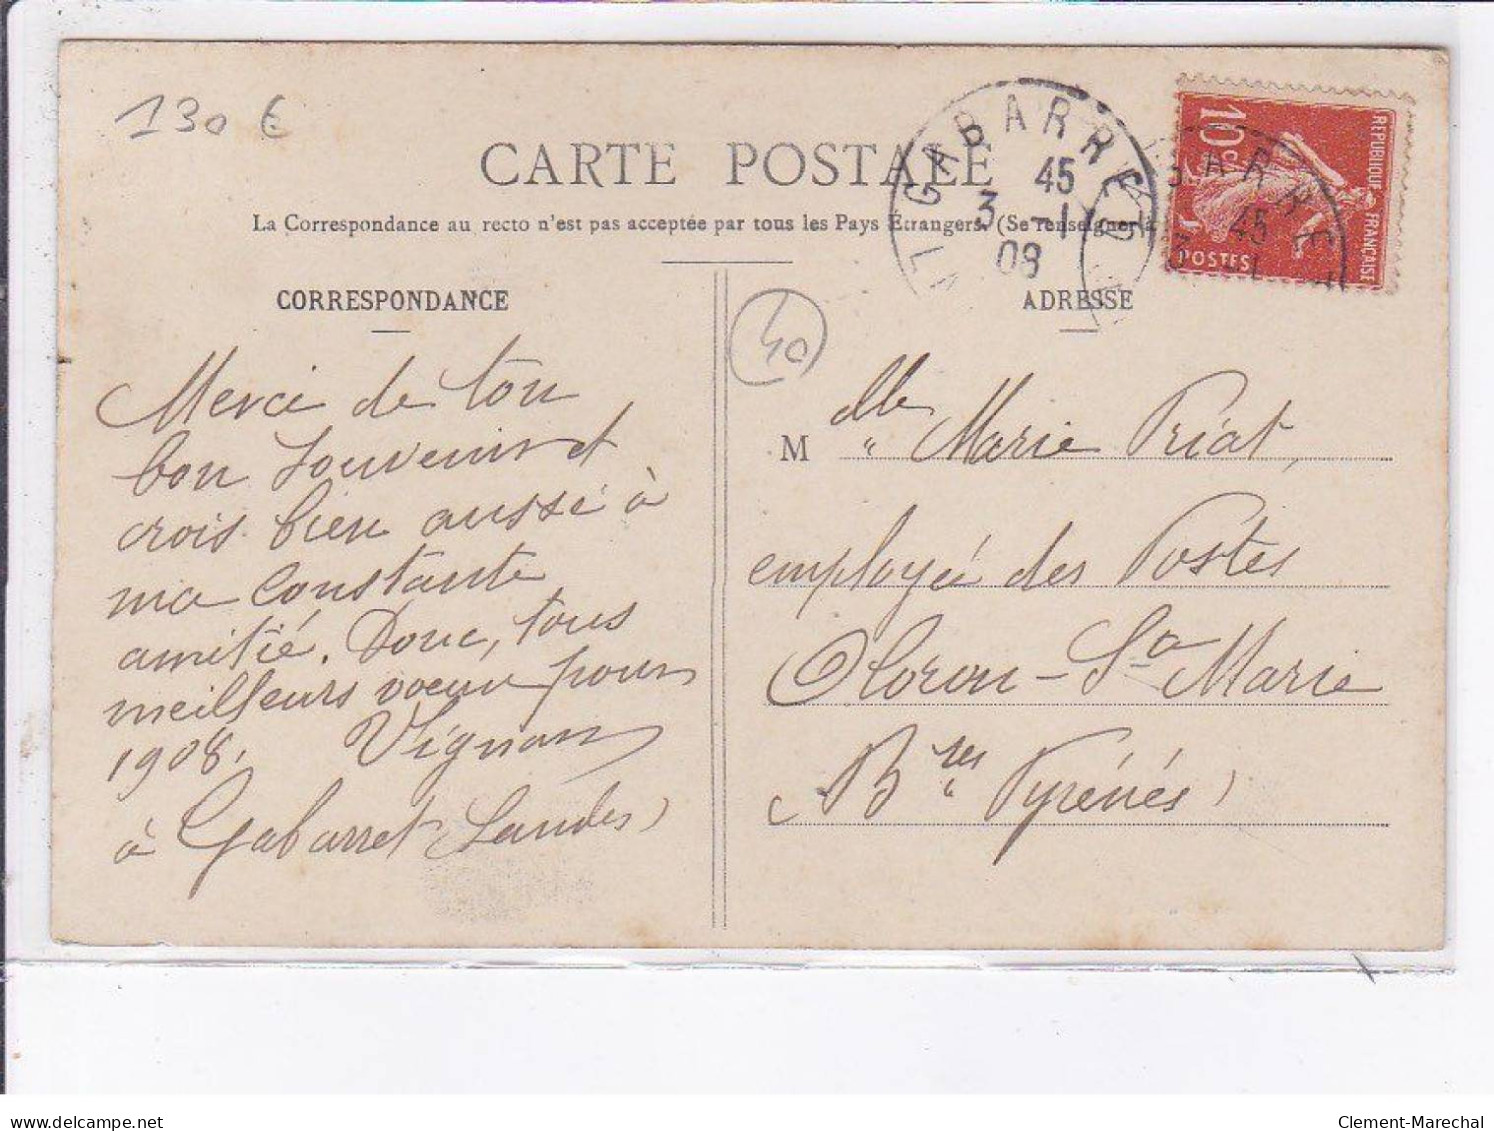 130 €
CARTE POSTALE
La Correspondance au recto n'est pas acceptée par tous les Pays Étrangers. (Se renseigner à la
GABARRET
45
3 -1
08
10c
REPUBLIQUE FRANÇAISE
POSTES
CORRESPONDANCE
Merci de ton
bon souvenir et
crois bien aussi à
ma constante
amitié. Donc, tous
meilleurs voeux pour
1908.
à Gabarret (Landes)
40
ADRESSE
M lle Marie Priat,
employée des Postes
Oloron-Ste Marie
(Bses Pyrénées)
delcampe.net
Clement-Marechal